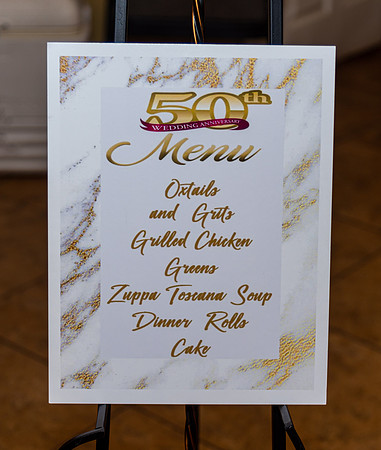 50th
WEDDING ANNIVERSARY
Menu
Oxtails
and Grits
Grilled Chicken
Greens
Zuppa Toscana Soup
Dinner Rolls
Cake